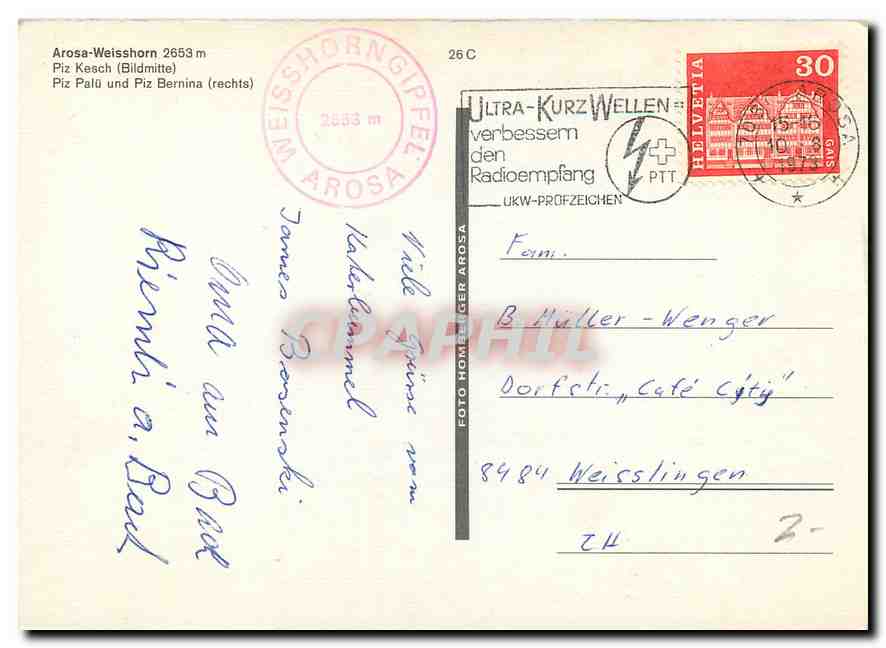 Arosa-Weisshorn 2653 m
Piz Kesch (Bildmitte)
Piz Palü und Piz Bernina (rechts)
WEISSHORNGIPFEL
2653 m
AROSA
26 C
ULTRA-KURZWELLEN=
verbessern
den
Radioempfang
UKW-PRÜFZEICHEN
PTT
HELVETIA
30
GAIS
AROSA
15-16
1973
FOTO HOMBERGER AROSA
Viele Grüsse vom
Katerbummel
James
Oma am
a.
Fam.
B Müller-Wenger
Dorfstr. „Café City"
8484 Weisslingen
ZH
2-
CPAPHIL